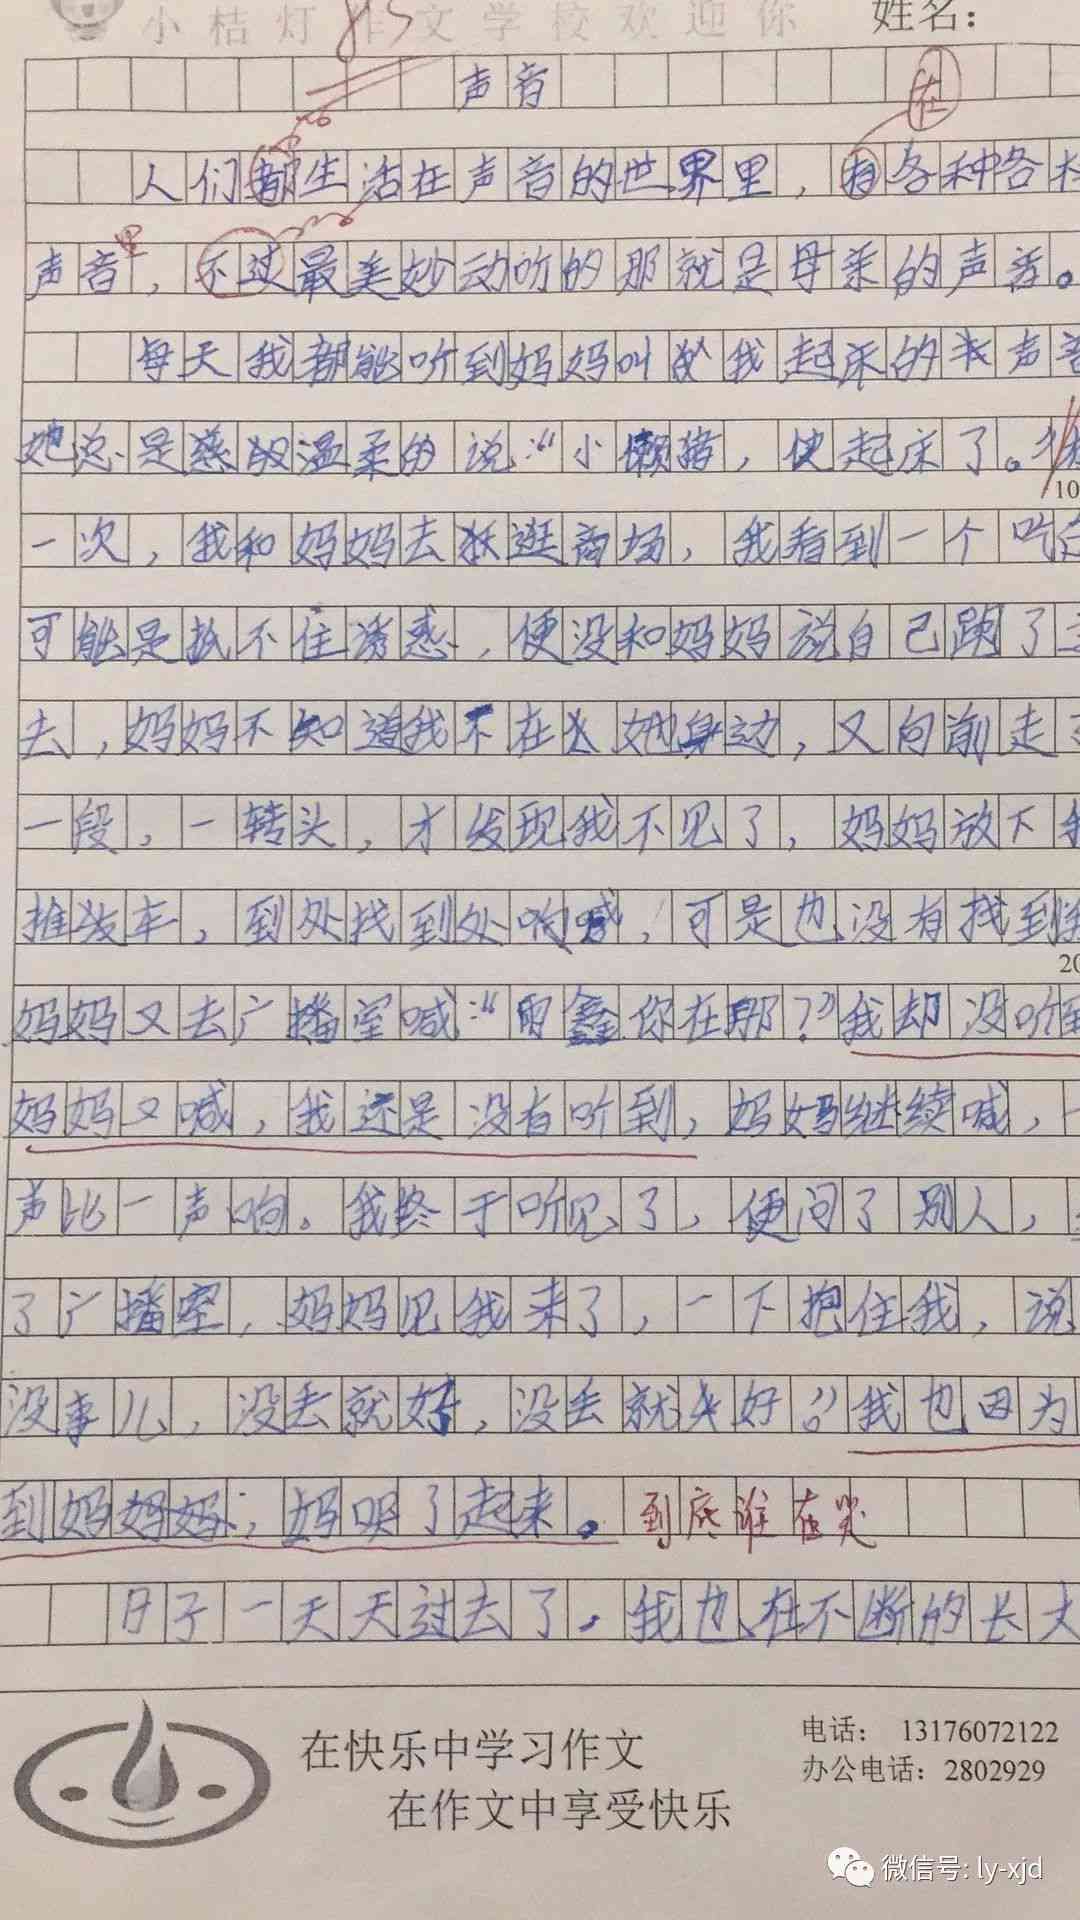 小桔灯作文学校欢迎你 姓名：
85
声音
在
人们都生活在声音的世界里，有各种各
声音里，不过最美妙动听的那就是母亲的声音。
每天我都能听到妈妈叫我起床的声音
她总是慈祥温柔的说：“小懒猪，快起床了。
10
一次，我和妈妈去逛商场，我看到一个吃
可能是抵不住诱惑，便没和妈妈说自己跑了
去，妈妈不知道我不在她身边，又向前走了
一段，一转头，才发现我不见了，妈妈放下
推车，到处找到处喊，可是也没有找到
20
妈妈又去广播室喊：“雨鑫你在那？”我却没听到
妈妈又喊，我还是没有听到，妈妈继续喊，一
声比一声响。我终于听见了，便问了别人，
了广播室，妈妈见我来了，一下抱住我，说
没事儿，没丢就好，没丢就好。”我也因为
到妈妈，妈哭了起来。 到底谁在哭
日子一天天过去了，我也在不断的长大
在快乐中学习作文
在作文中享受快乐
电话： 13176072122
办公电话：2802929
微信号: ly-xjd